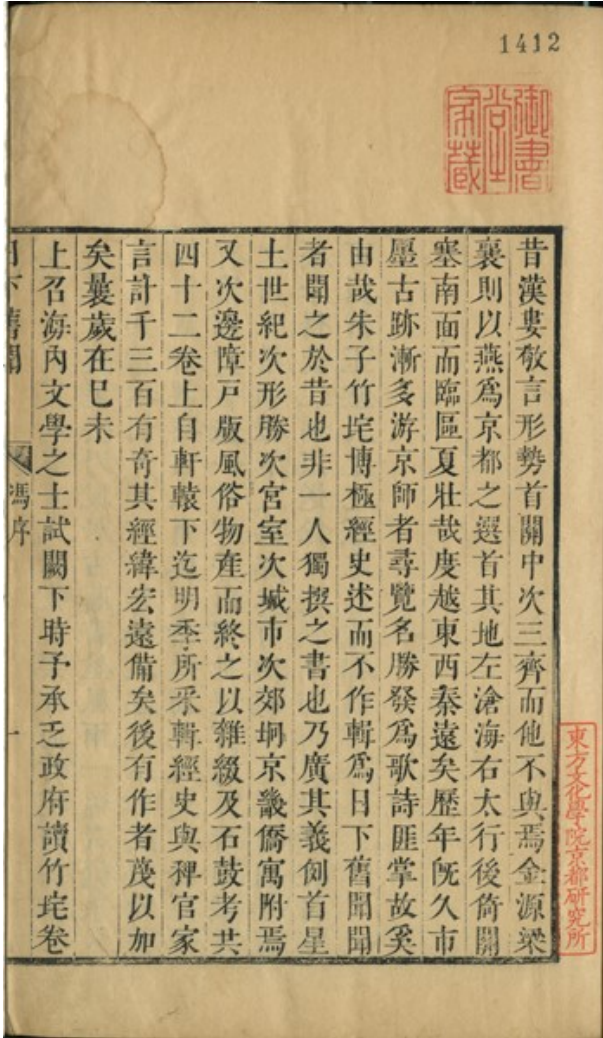 1412
御書
堂
家藏
昔漢婁敬言形勢首關中次三齊而他不與焉金源梁
襄則以燕爲京都之選首其地左滄海右太行後倚關
塞南面而臨區夏壯哉度越東西秦遠矣歷年旣久市
㕓古跡漸多游京師者尋覽名勝發爲歌詩匪掌故奚
由哉朱子竹垞博極經史述而不作輯爲日下舊聞聞
者聞之於昔也非一人獨撰之書也乃廣其義例首星
土世紀次形勝次宮室次城市次郊坰京畿僑寓附焉
又次邊障戸版風俗物産而終之以雜綴及石鼓考共
四十二卷上自軒轅下迄明季所釆輯經史與稗官家
言計千三百有奇其經緯宏遠備矣後有作者蔑以加
矣曩歲在巳未
上召海內文學之士試闕下時予承乏政府讀竹垞卷
日下舊聞
馮序
一
東方文化學院京都研究所